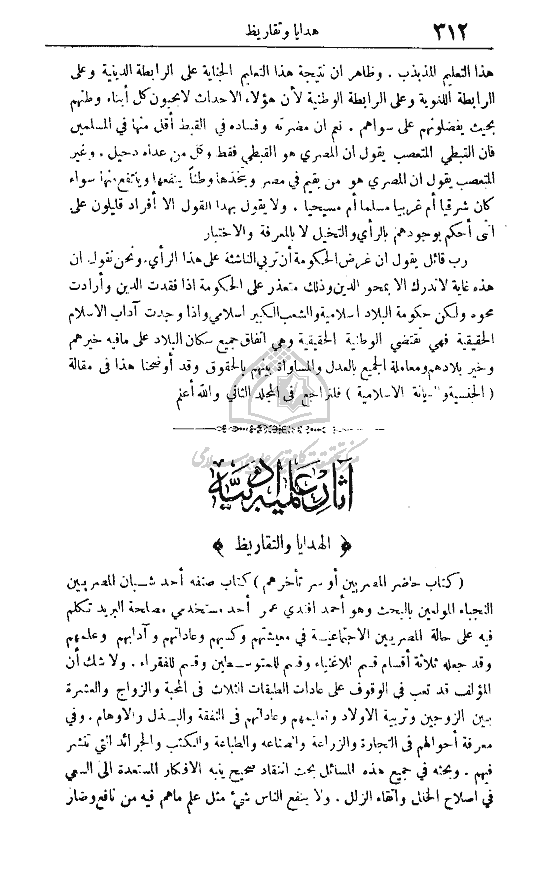 ٣١٢
هدايا وتقاريظ
هذا التعليم المذبذب . وظاهر ان نتيجة هذا التعليم الجناية على الرابطة الدينية وعلى
الرابطة اللغوية وعلى الرابطة الوطنية لأن هؤلاء الاحداث لايحبون كل أبناء وطنهم
بحيث يفضلونهم على سواهم . نعم ان مضرته وفساده في القبط أقل منها في المسلمين
فان القبطي المتعصب يقول ان المصري هو القبطي فقط وكل من عداه دخيل . وغير
المتعصب يقول ان المصري هو من يقيم في مصر ويتخذها وطناً ينفعها وينتفع منها سواء
كان شرقيا أم غربيا مسلما أم مسيحيا . ولا يقول بهذا القول الا أفراد قليلون على
اني أحكم بوجودهم بالرأي والتخيل لا بالمعرفة والاختبار
رب قائل يقول ان غرض الحكومة أن تربي الناشئة على هذا الرأي. ونحن نقول ان
هذه غاية لاتدرك الا بمحو الدين وذلك متعذر على الحكومة اذا فقدت الدين وأرادت
محوه ولكن حكومة البلاد اسلامية والشعب الكبير اسلامي واذا وجدت آداب الاسلام
الحقيقية فهي تقتضي الوطنية الحقيقية وهي اتفاق جميع سكان البلاد على مافيه خيرهم
وخير بلادهم ومعاملة الجميع بالعدل والمساواة بينهم بالحقوق وقد أوضحنا هذا في مقالة
( الجنسية و الديانة الاسلامية ) فلتراجع في المجلد الثاني والله أعلم
آثار علمية ادبية
﴿ الهدايا والتقاريظ ﴾
(كتاب حاضر المصريين أو سر تأخرهم) كتاب صنفه أحد شبان المصريين
النجباء المولعين بالبحث وهو أحمد افندي عمر أحد مستخدمي مصلحة البريد تكلم
فيه على حالة المصريين الاجتماعية في معيشتهم وكسبهم وعاداتهم وآدابهم وعلمهم
وقد جعله ثلاثة أقسام قسم للاغنياء وقسم للمتوسطين وقسم للفقراء . ولا شك أن
المؤلف قد تعب في الوقوف على عادات الطبقات الثلاث في المحبة والزواج والعشرة
بين الزوجين وتربية الاولاد وتعليمهم وعاداتهم في النفقة والبذل والاوهام . وفي
معرفة أحوالهم في التجارة والزراعة والصناعه والطباعة والكتب والجرائد التي تنشر
فيهم . وبحثه في جميع هذه المسائل بحث انتقاد صحيح ينبه الافكار المستعدة الى السعي
في اصلاح الخلل واتقاء الزلل . ولا ينفع الناس شيء مثل علم ماهم فيه من نافع وضار